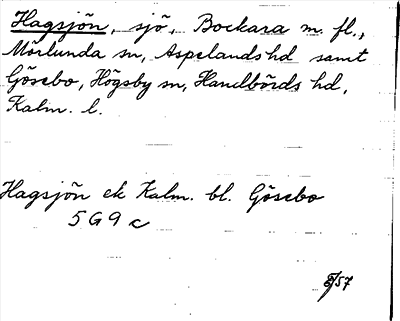 Hagsjön, sjö, Bockara m. fl.,
Mörlunda sn, Aspelands hd samt
Gösebo, Högsby sn, Handbörds hd,
Kalm. l.
Hagsjön ek Kalm. bl. Gösebo
5 G 9 c